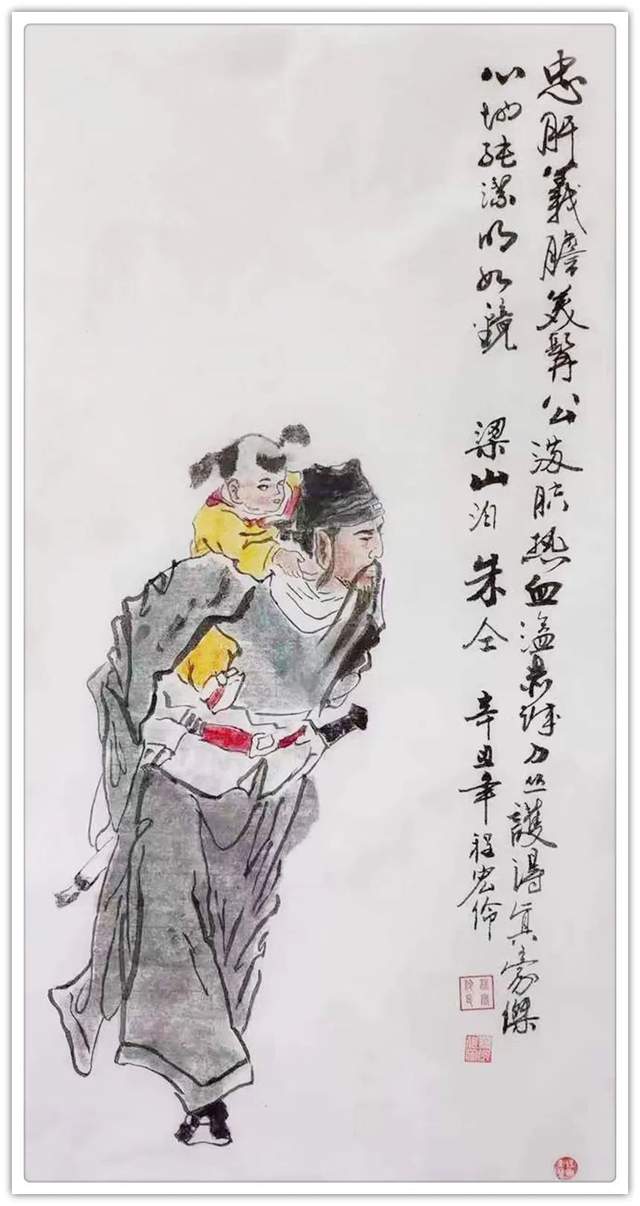 忠肝義膽美髯公满腔热血溢赤诚刀丛護得真豪傑
心地純潔明如鏡
梁山泊朱仝 辛丑年程宏伶